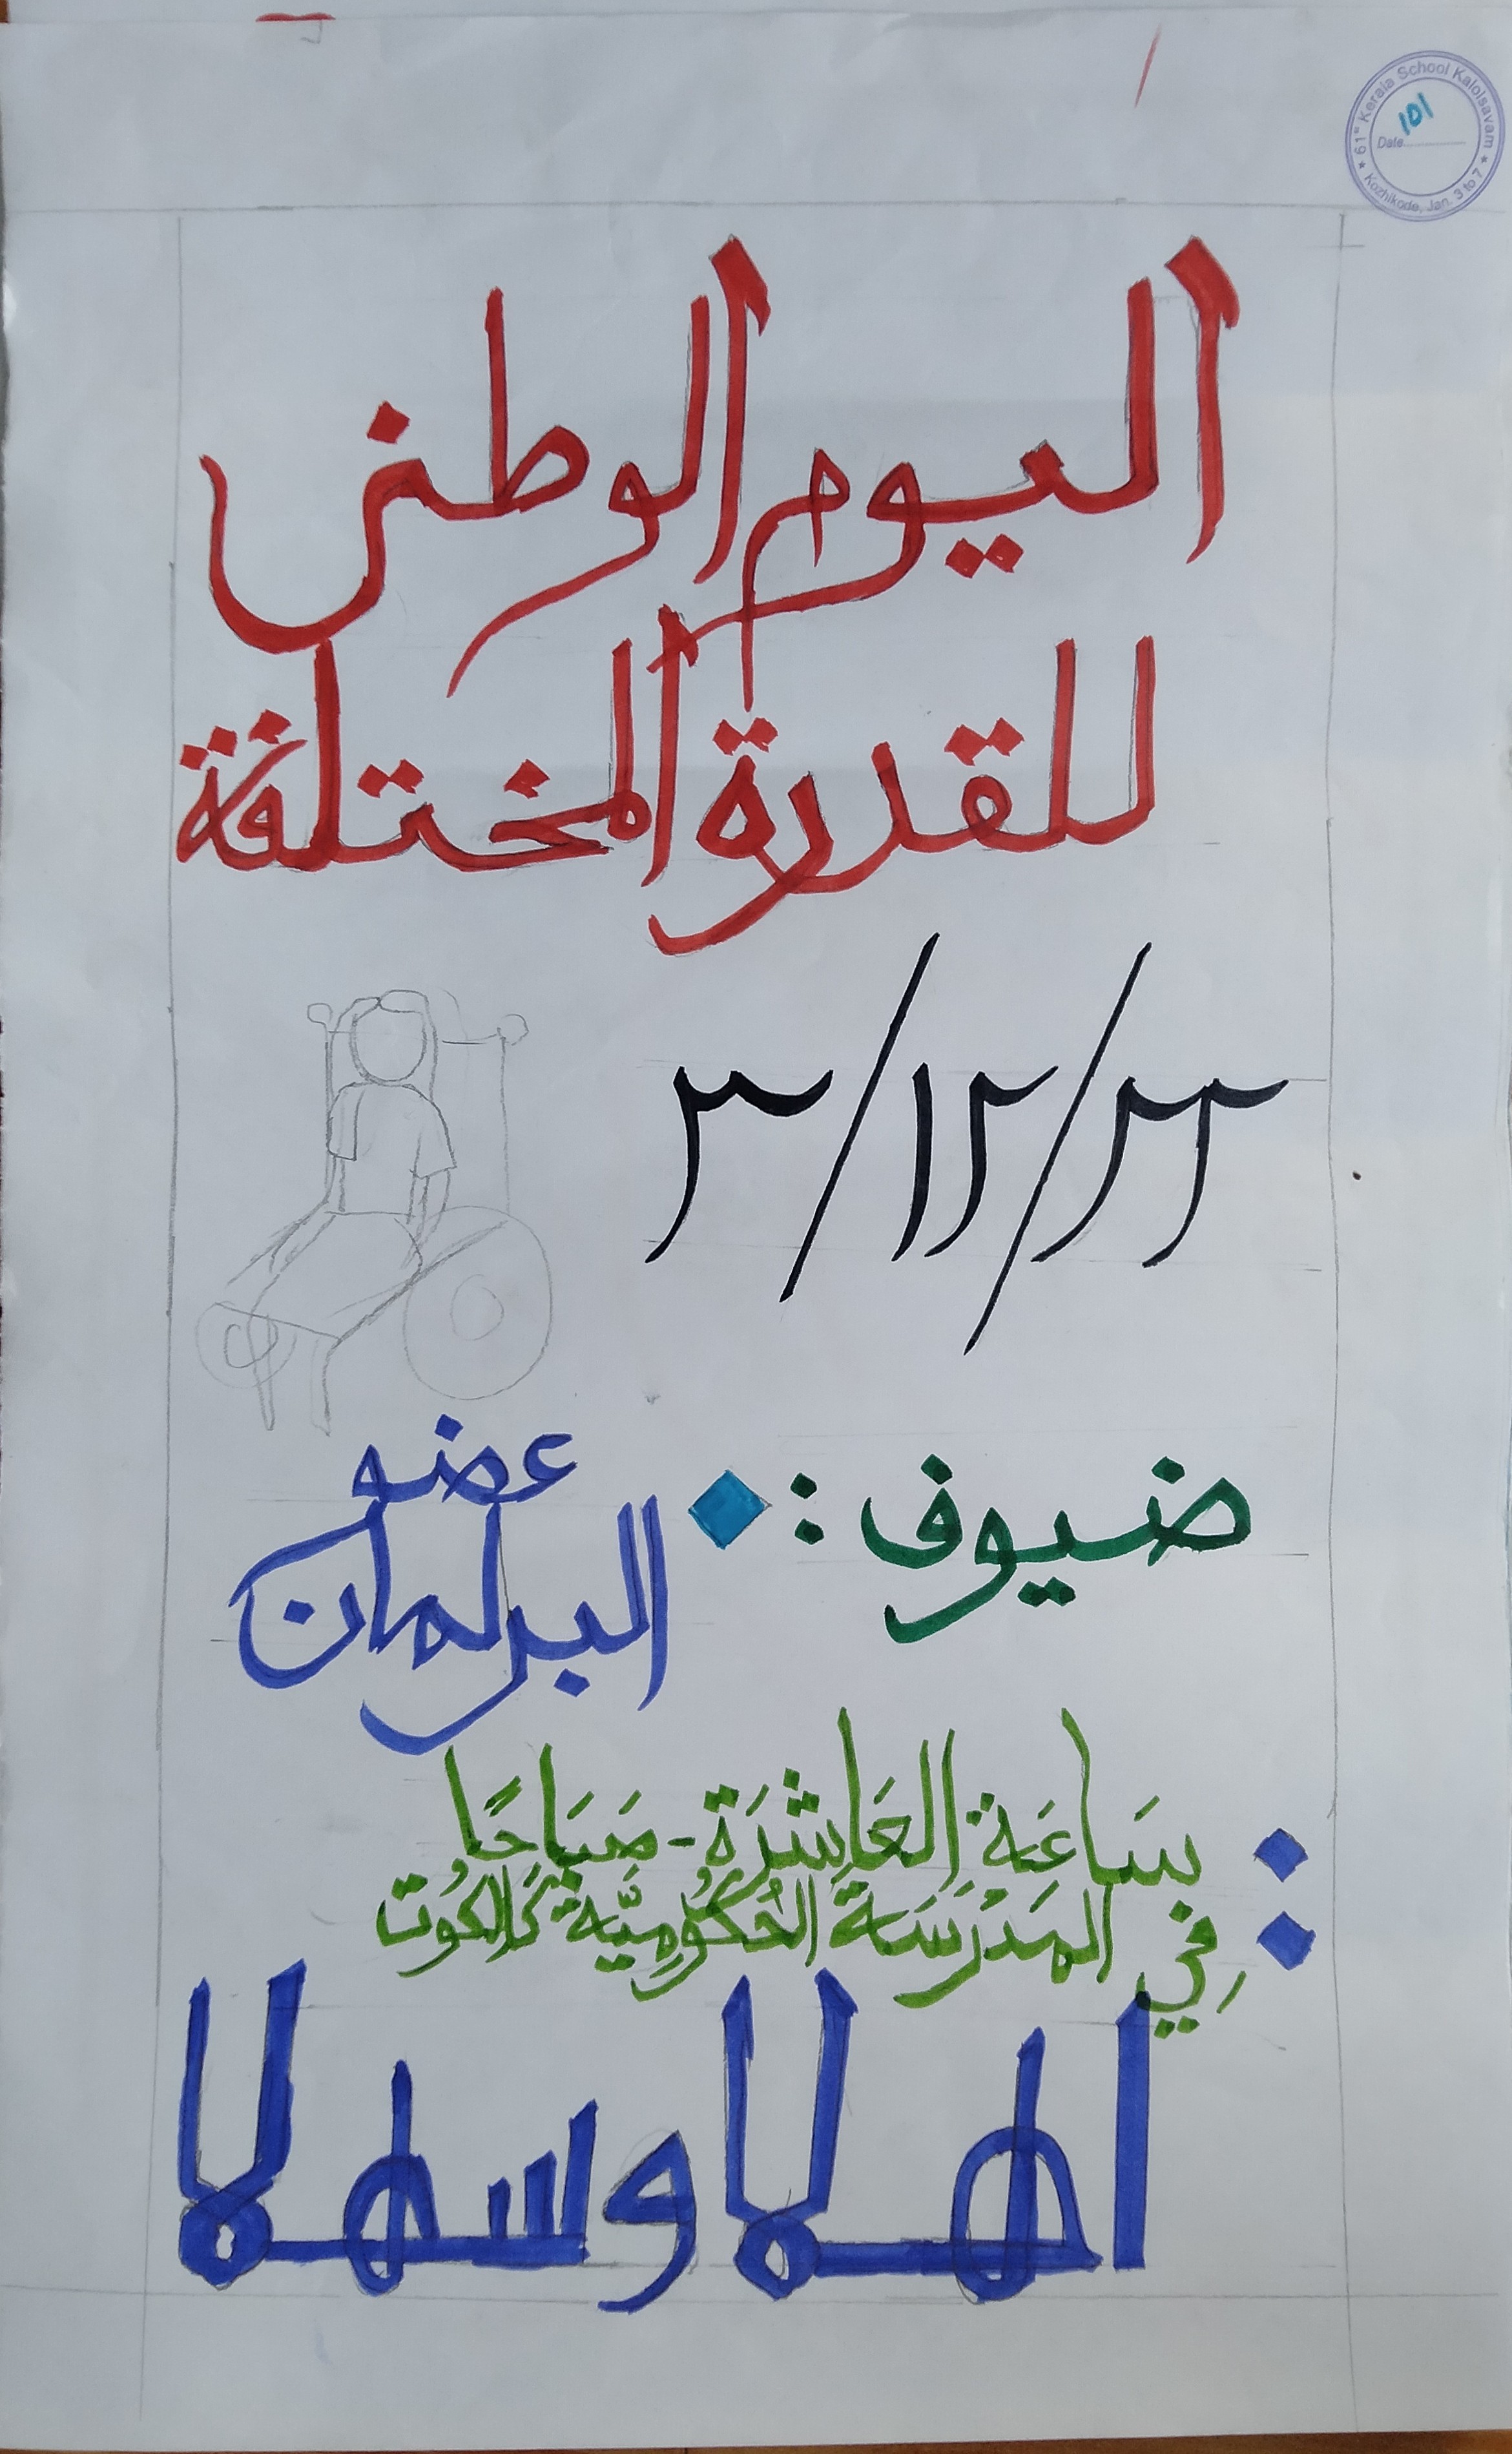 61st Kerala School Kalolsavam
101
Date..........
Kozhikode, Jan. 3 to 7
اليوم الوطنى
للقدرة المختلفة
٣/١٢/٢٢
ضيوف : عضو
البرلمان
بسَاعَة العَاشِرَة - صَبَاحًا
فِي المَدْرَسَة الحُكُومِيَّة كَالِكُوت
اهلا وسهلا